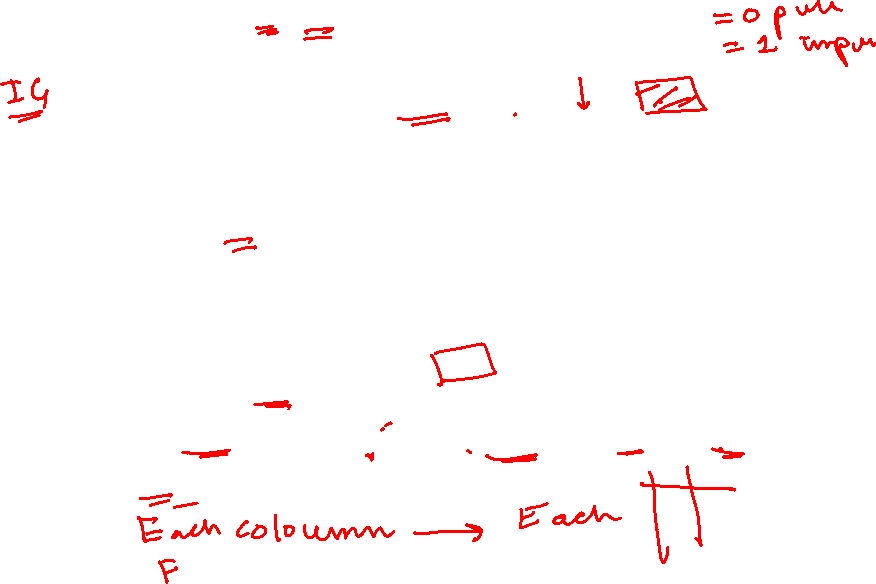 = 0 pure
= 1 impu
IG
Each coloumn → Each
F